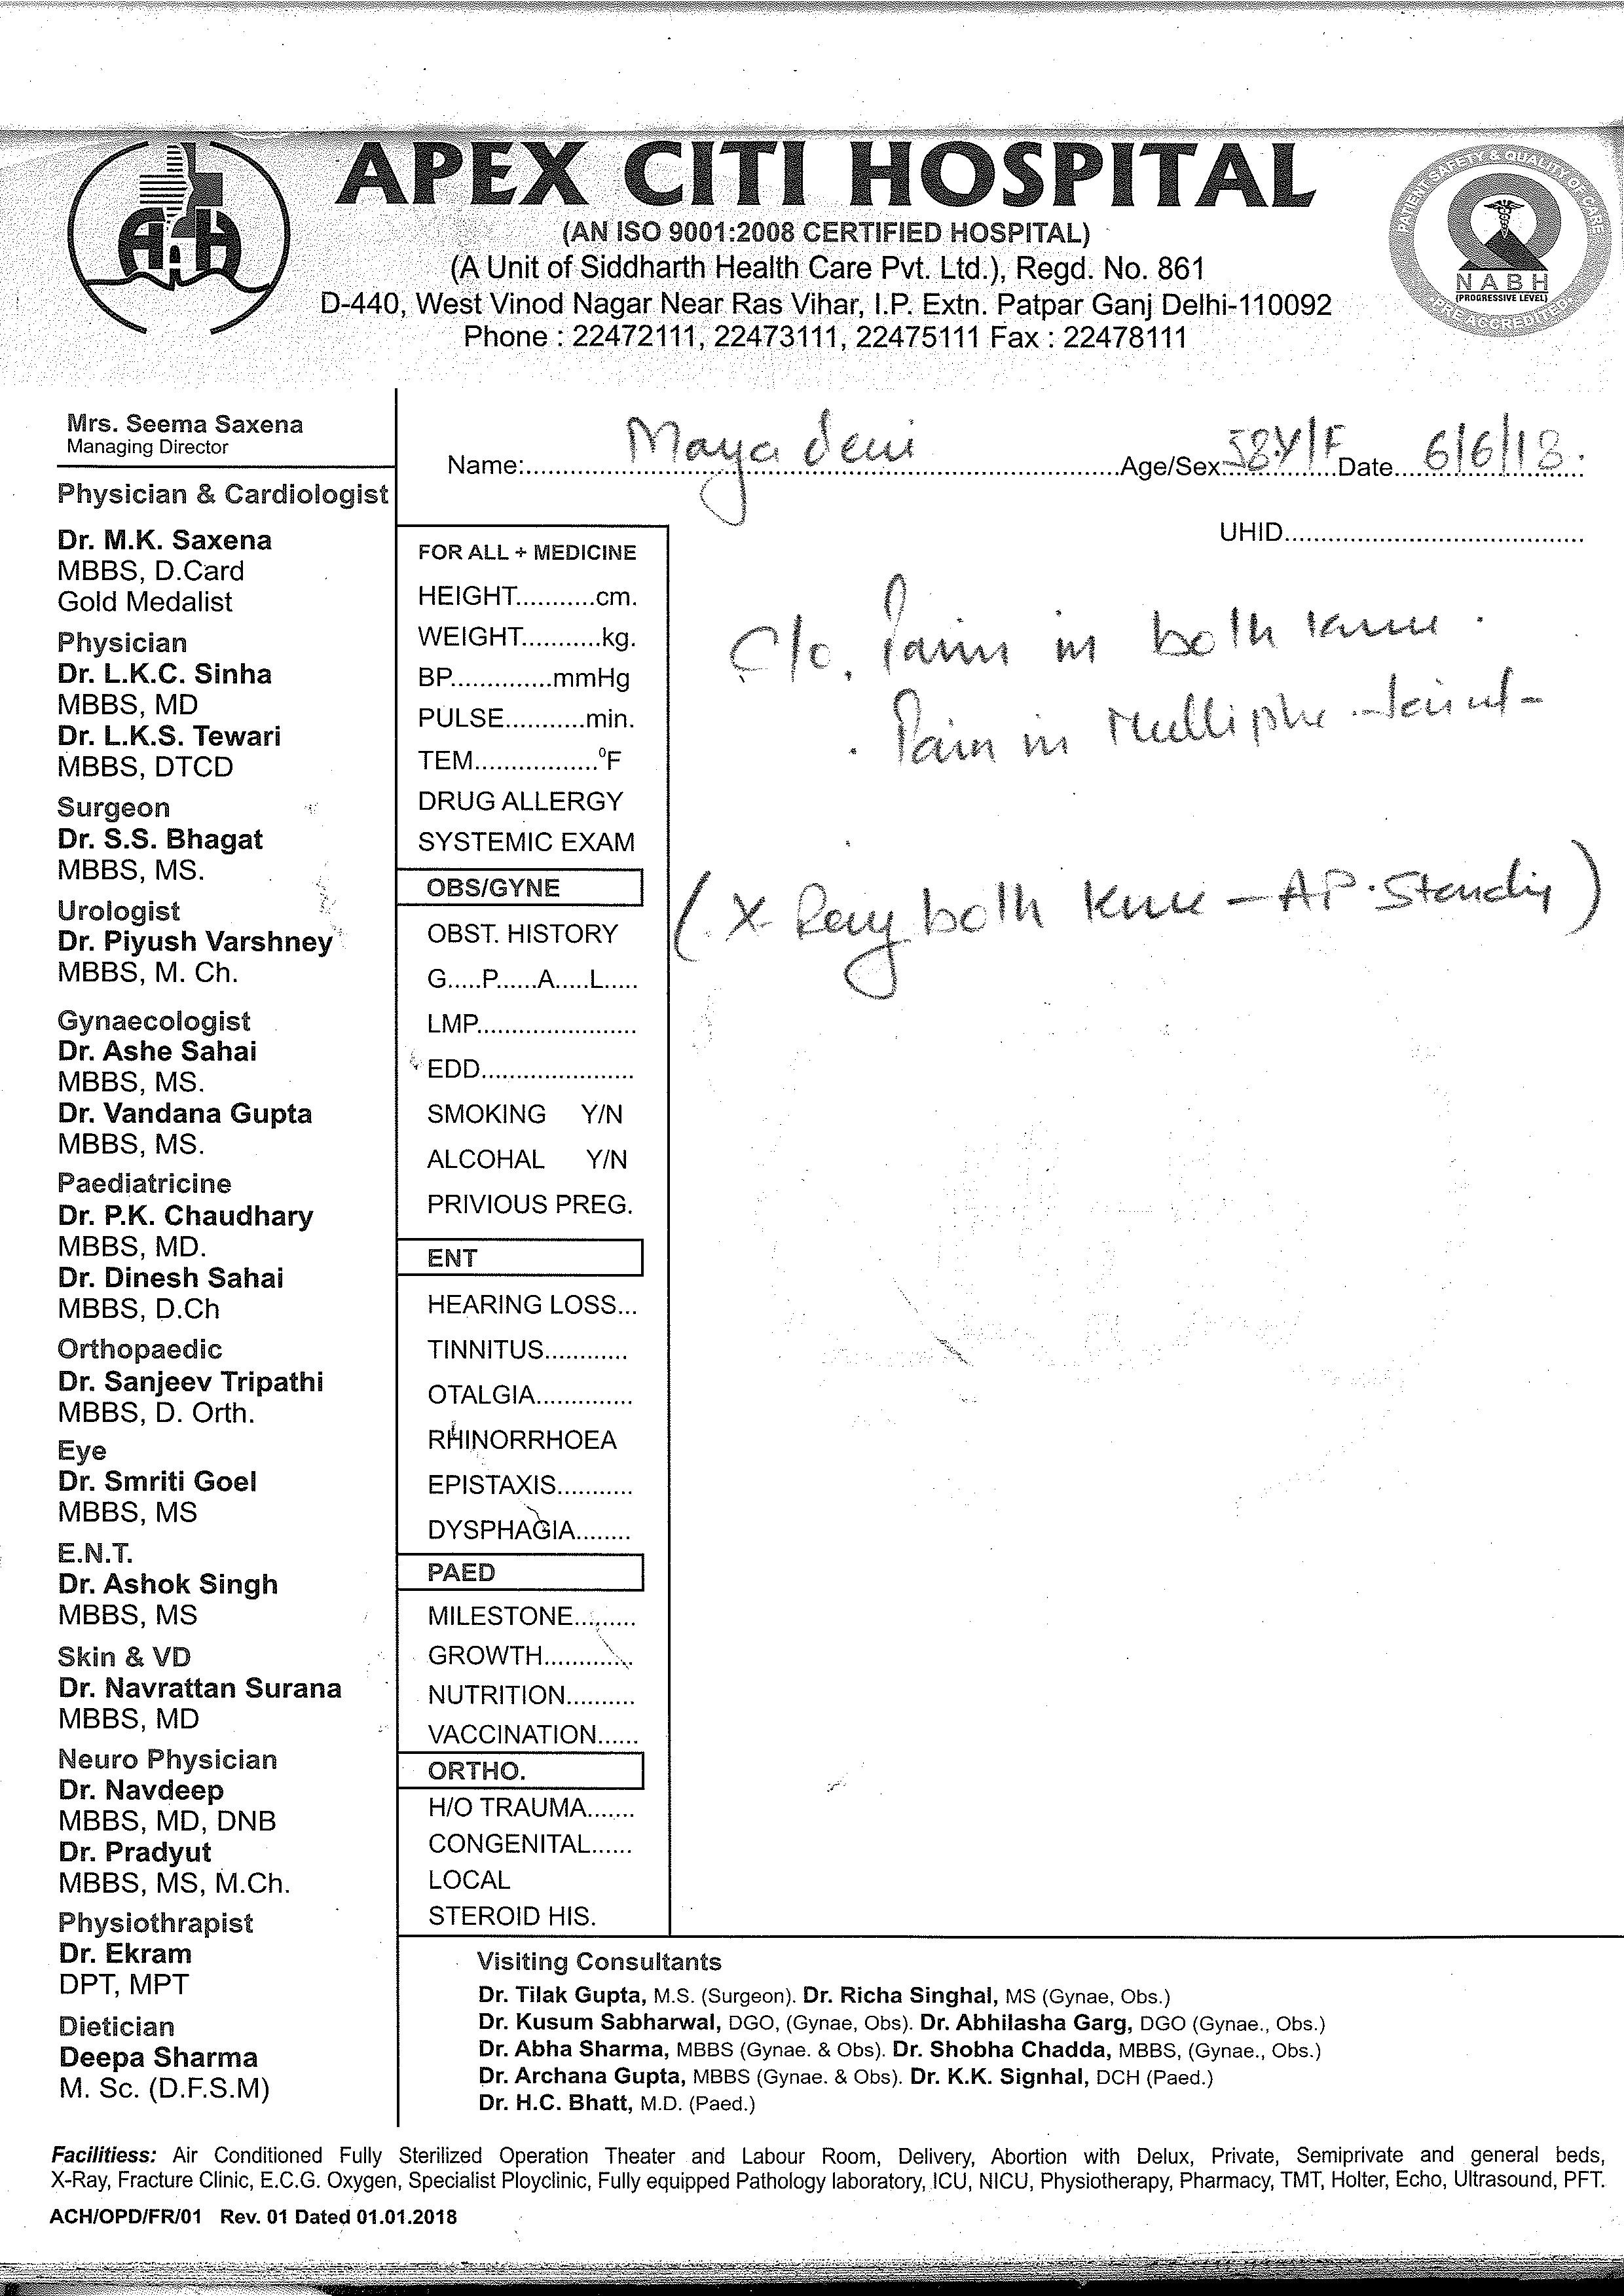 APEX CITI HOSPITAL
(AN ISO 9001:2008 CERTIFIED HOSPITAL)
(A Unit of Siddharth Health Care Pvt. Ltd.), Regd. No. 861
D-440, West Vinod Nagar Near Ras Vihar, I.P. Extn. Patpar Ganj Delhi-110092
Phone : 22472111, 22473111, 22475111 Fax : 22478111
AAH
PATIENT SAFETY & QUALITY OF CARE
NABH
(PROGRESSIVE LEVEL)
PRE ACCREDITED
Mrs. Seema Saxena
Managing Director
Physician & Cardiologist
Dr. M.K. Saxena
MBBS, D.Card
Gold Medalist
Physician
Dr. L.K.C. Sinha
MBBS, MD
Dr. L.K.S. Tewari
MBBS, DTCD
Surgeon
Dr. S.S. Bhagat
MBBS, MS.
Urologist
Dr. Piyush Varshney
MBBS, M. Ch.
Gynaecologist
Dr. Ashe Sahai
MBBS, MS.
Dr. Vandana Gupta
MBBS, MS.
Paediatricine
Dr. P.K. Chaudhary
MBBS, MD.
Dr. Dinesh Sahai
MBBS, D.Ch
Orthopaedic
Dr. Sanjeev Tripathi
MBBS, D. Orth.
Eye
Dr. Smriti Goel
MBBS, MS
E.N.T.
Dr. Ashok Singh
MBBS, MS
Skin & VD
Dr. Navrattan Surana
MBBS, MD
Neuro Physician
Dr. Navdeep
MBBS, MD, DNB
Dr. Pradyut
MBBS, MS, M.Ch.
Physiothrapist
Dr. Ekram
DPT, MPT
Dietician
Deepa Sharma
M. Sc. (D.F.S.M)
Name: Maya devi Age/Sex 58Y/F Date 6/6/18.
UHID
FOR ALL + MEDICINE
HEIGHT...........cm.
WEIGHT..........kg.
BP..............mmHg
PULSE..........min.
TEM.................ºF
DRUG ALLERGY
SYSTEMIC EXAM
OBS/GYNE
OBST. HISTORY
G.....P......A.....L.....
LMP......................
EDD.....................
SMOKING Y/N
ALCOHAL Y/N
PRIVIOUS PREG.
ENT
HEARING LOSS...
TINNITUS............
OTALGIA.............
RHINORRHOEA
EPISTAXIS...........
DYSPHAGIA........
PAED
MILESTONE.........
GROWTH.............
NUTRITION..........
VACCINATION......
ORTHO.
H/O TRAUMA.......
CONGENITAL......
LOCAL
STEROID HIS.
C/o. Pain in both knee.
. Pain in Multiple Joint-
(X Ray both Knee - AP. Standing)
Visiting Consultants
Dr. Tilak Gupta, M.S. (Surgeon). Dr. Richa Singhal, MS (Gynae, Obs.)
Dr. Kusum Sabharwal, DGO, (Gynae, Obs). Dr. Abhilasha Garg, DGO (Gynae., Obs.)
Dr. Abha Sharma, MBBS (Gynae. & Obs). Dr. Shobha Chadda, MBBS, (Gynae., Obs.)
Dr. Archana Gupta, MBBS (Gynae. & Obs). Dr. K.K. Signhal, DCH (Paed.)
Dr. H.C. Bhatt, M.D. (Paed.)
Facilitiess: Air Conditioned Fully Sterilized Operation Theater and Labour Room, Delivery, Abortion with Delux, Private, Semiprivate and general beds,
X-Ray, Fracture Clinic, E.C.G. Oxygen, Specialist Ployclinic, Fully equipped Pathology laboratory, ICU, NICU, Physiotherapy, Pharmacy, TMT, Holter, Echo, Ultrasound, PFT.
ACH/OPD/FR/01 Rev. 01 Dated 01.01.2018